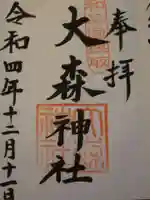 奉拝
大森神社
令和四年十二月十一日